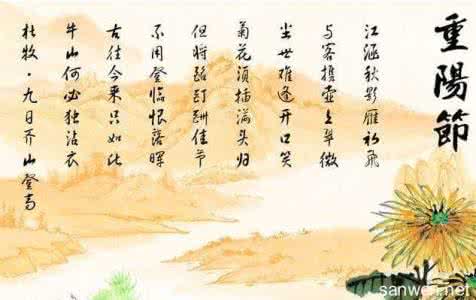 重陽節
江涵秋影雁初飞
与客携壶上翠微
尘世难逢开口笑
菊花须插满头归
但将酩酊酬佳节
不用登临恨落晖
古往今来只如此
牛山何必独沾衣
杜牧·九日齐山登高
sanwen.net